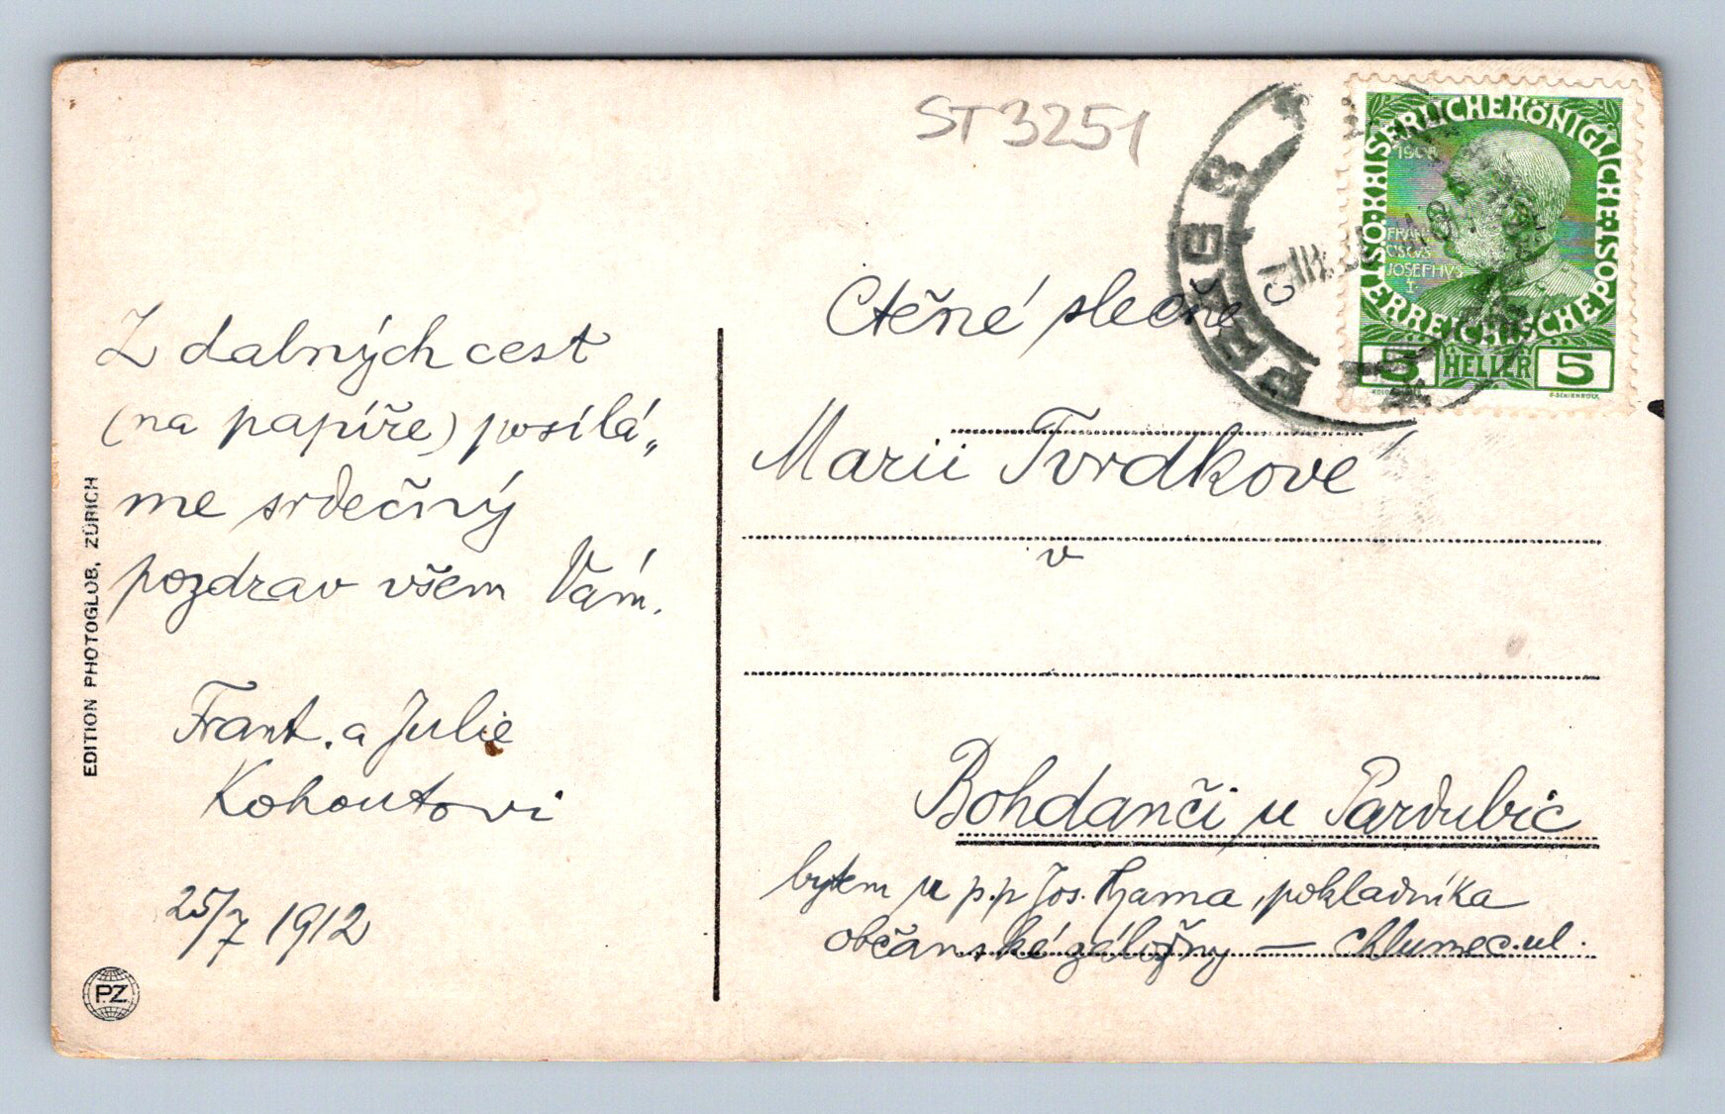 ST 3251
KAISERLICHE KÖNIGLICHE ÖSTERREICHISCHE POST
1908
FRAN
CISCVS
JOSEPHVS
I.
5 HELLER 5
Z dalných cest
(na papíře) posílá„
me srdečný
pozdrav všem Vám.
Frant. a Julie
Kohoutovi
25/7 1912
EDITION PHOTOGLOB, ZÜRICH
PZ
Ctěné slečně
Marii Tvrdkové
v
Bohdanči u Pardubic
bytem u p.p Jos. Hama, pokladníka
občanské záložny — Chlumec. ul.